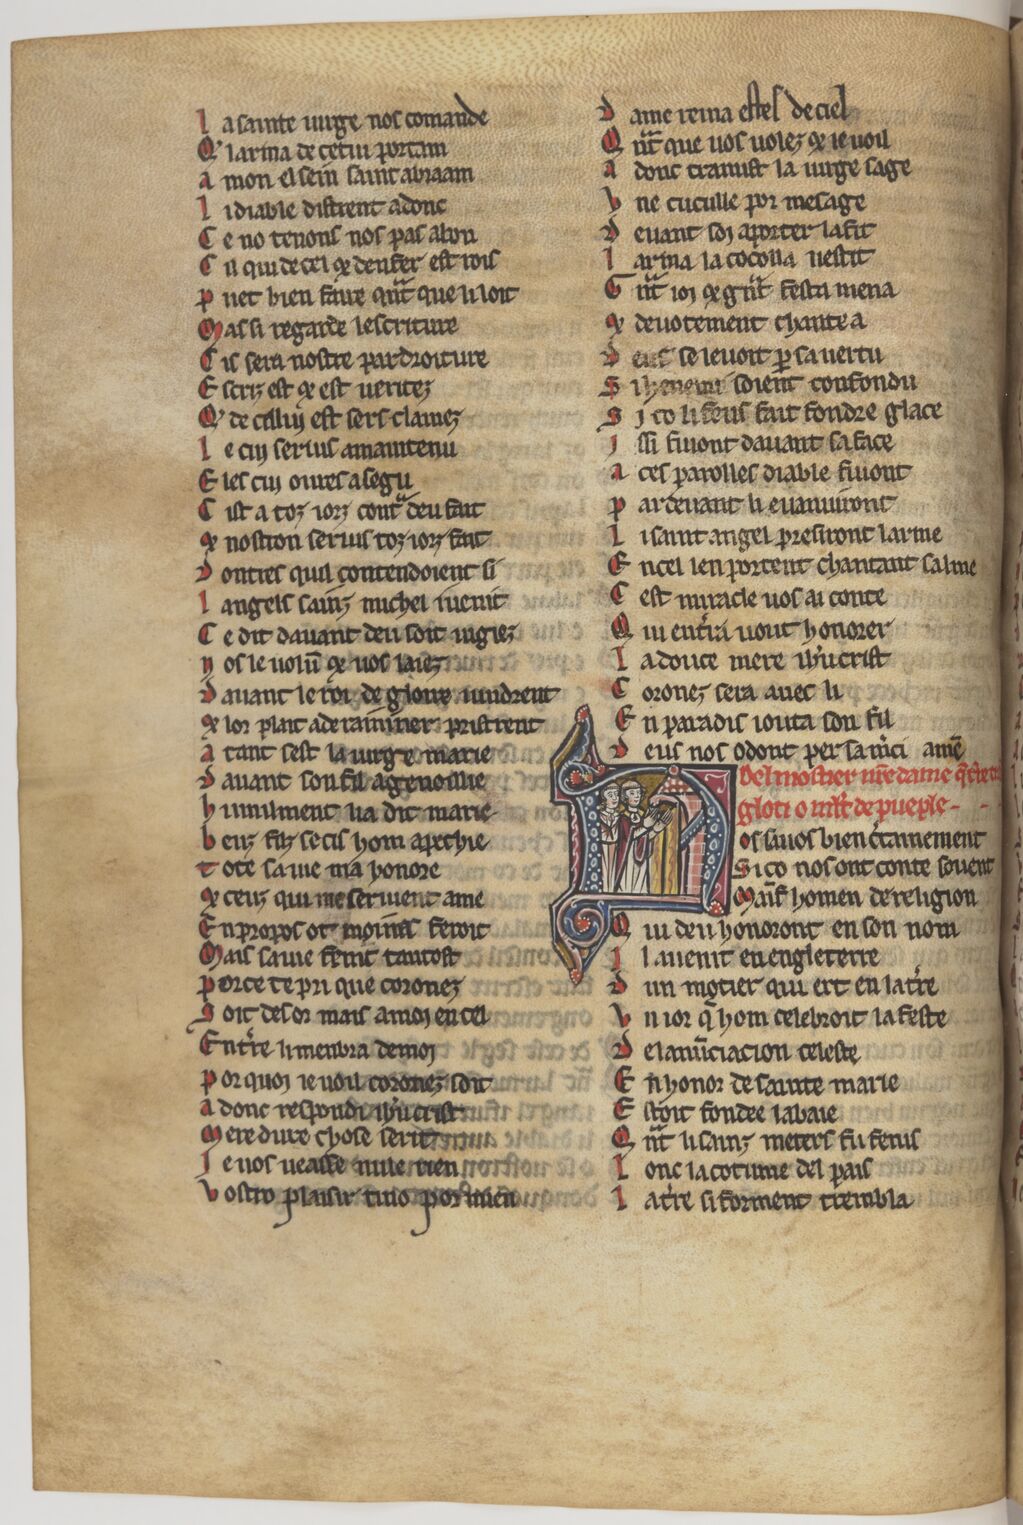 La sainte uirge nos comande
Q' larma de cetui portam
Amon el sein saint abraam
Li diable distrent adonc
Ce no tenons nos pas a bon
Cil qui de cel ⁊ denfer est rois
Puet bien faire qant que li loit
Mas si regarde lescriture
Cis sera nostre par droiture
Escriz est ⁊ est ueritez
Q' de celluj est sers clamez
Le cuj seruis a maintenu
E les cuj oures a segu
Cist a toz iorz contra deu fait
⁊ nostron seruis toz iorz fait
Dontres quil contendoient si
Langels sainz michel i uenit
Ce dit dauant deu soit iugiez
Nos le uolun ⁊ uos laiez
Dauant le roi de gloire uindrent
⁊ lor plait a deraisnier pristrent
Atant sest la uirge marie
Dauant son fil agenoillie
Humilment li a dit marie
Beuz fiuz se cis hom a pechie
Tote sa uie ma honore
⁊ ceuz qui me seruent ame
En propos ot moines seroit
Mais sa uie fenit tantost
Por ce te pri que coronez
Soit desor mais a moj en cel
Entre li menbra de moj
Por quoj ie uoil coronez soit
Adonc respondi ihu crist
Mere dure chose serit
Je uos ueasse nule rien
Vostro plaisir tuio por mien
Dame reina estes de ciel
Qnt que uos uolez ⁊ ie uoil
Adonc tramist la uirge sage
Vne cuculle por mesage
Deuant soj aporter la fit
Larma la cocolla uestit
Gnt ioj ⁊ gnt festa mena
⁊ deuotement chanta
Deus se leuoit p sa uertu
Si henemi soient confondu
Sj co li feus fait fondre glace
Jssi fuiont dauant sa face
A ces parolles diable fuiont
Par deuant li euanuiront
Li saint angel presiront larme
En cel len portent chantant salme
Cest miracle uos ai conte
Qui entra uout honorer
La douce mere ihu crist
Coronez sera auec li
En paradis iouta son fil
Deus nos odont per sa mci amē
Del mostier nre dame
gloti o mlt de pueple
Nos sauos bien certannement
Si co nos ont conte souent
Maint homen de religion
Qui deu honoront en son nom
Jl auenit en engleterre
Dun motier qui ert en la tre
Vn ior q hom celebroit la feste
De lanunciacion celeste
En honor de sainte marie
Estoit fondee labaie
Qnt li sainz meters fu fenis
Lonc la cotume del pais
La tre si forment trembla